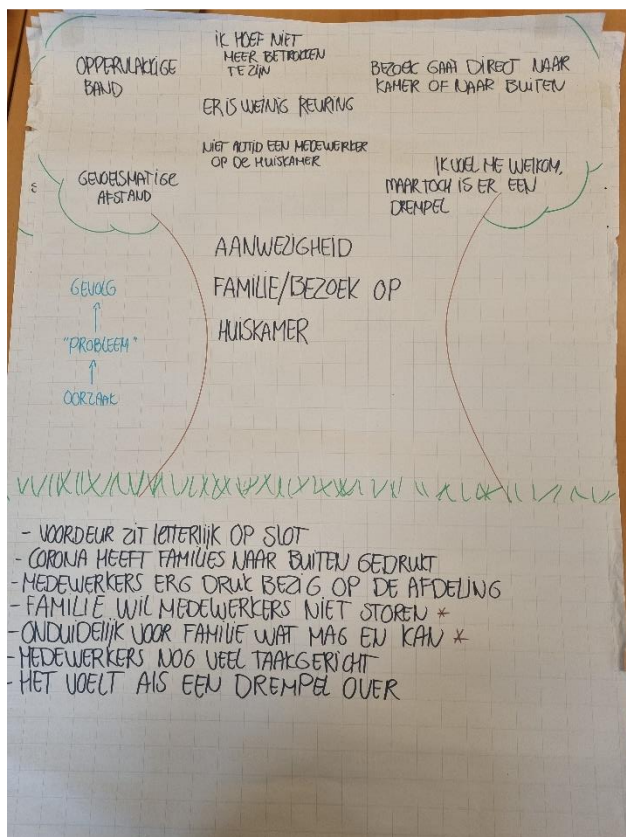 OPPERVLAKKIGE
BAND
IK HOEF NIET
MEER BETROKKEN
TE ZIJN
BEZOEK GAAT DIRECT NAAR
KAMER OF NAAR BUITEN
ER IS WEINIG REURING
NIET ALTIJD EEN MEDEWERKER
OP DE HUISKAMER
GEVOELSMATIGE
AFSTAND
IK VOEL ME WELKOM,
MAAR TOCH IS ER EEN
DREMPEL
AANWEZIGHEID
FAMILIE/BEZOEK OP
HUISKAMER
GEVOLG
"PROBLEEM"
OORZAAK
- VOORDEUR ZIT LETTERLIJK OP SLOT
- CORONA HEEFT FAMILIES NAAR BUITEN GEDRUKT
- MEDEWERKERS ERG DRUK BEZIG OP DE AFDELING
- FAMILIE WIL MEDEWERKERS NIET STOREN *
- ONDUIDELIJK VOOR FAMILIE WAT MAG EN KAN *
- MEDEWERKERS NOG VEEL TAAKGERICHT
- HET VOELT ALS EEN DREMPEL OVER